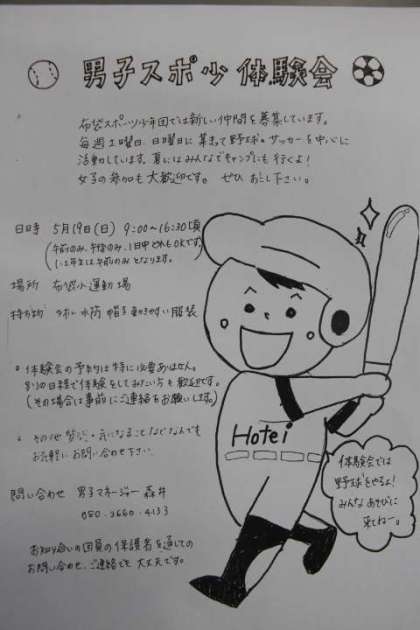 男子スポ少体験会
布袋スポーツ少年団では新しい仲間を募集しています。
毎週土曜日、日曜日に集まって野球・サッカーを中心に
活動しています。夏にはみんなでキャンプにも行くよ！
女子の参加も大歓迎です。ぜひお越し下さい。
日時 5月19日(日) 9:00〜16:30頃
(午前のみ、午後のみ、1日中どれもOKです。
1・2年生は午前のみとなります。)
場所 布袋小運動場
持ち物 水筒 帽子 動きやすい服装
体験会の予約は特に必要ありません。
別の日程で体験をしてみたい方も歓迎です。
(その場合は事前にご連絡をお願いします)
その他 質問・気になることなどなんでも
お気軽にお問い合わせ下さい。
問い合わせ 男子マネージャー 森井
お知り合いの団員の保護者を通しての
お問い合わせ、ご連絡でも大丈夫です。
Hotei
体験会では
野球をやるよ！
みんなあそびに
来てねー。